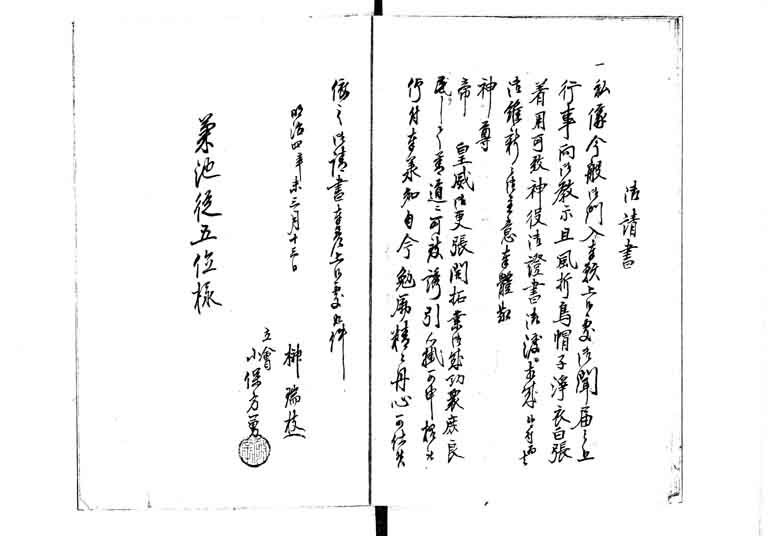 御請書
一私儀今般御門入奉願上候處御聞届之上
行事向御教示且風折烏帽子淨衣白張
着用可致神役御證書御渡
御維新之御主意奉體認
神尊
帝 皇威御更張開拓業御成功衆庶良
民之善道ニ可被誘引
行付奉承知自今勉厲精々丹心可仕候
依之御請書奉差上候處如件
明治四年未三月十三日
榊瑞枝
立會
小保方勇
菊池従五位様